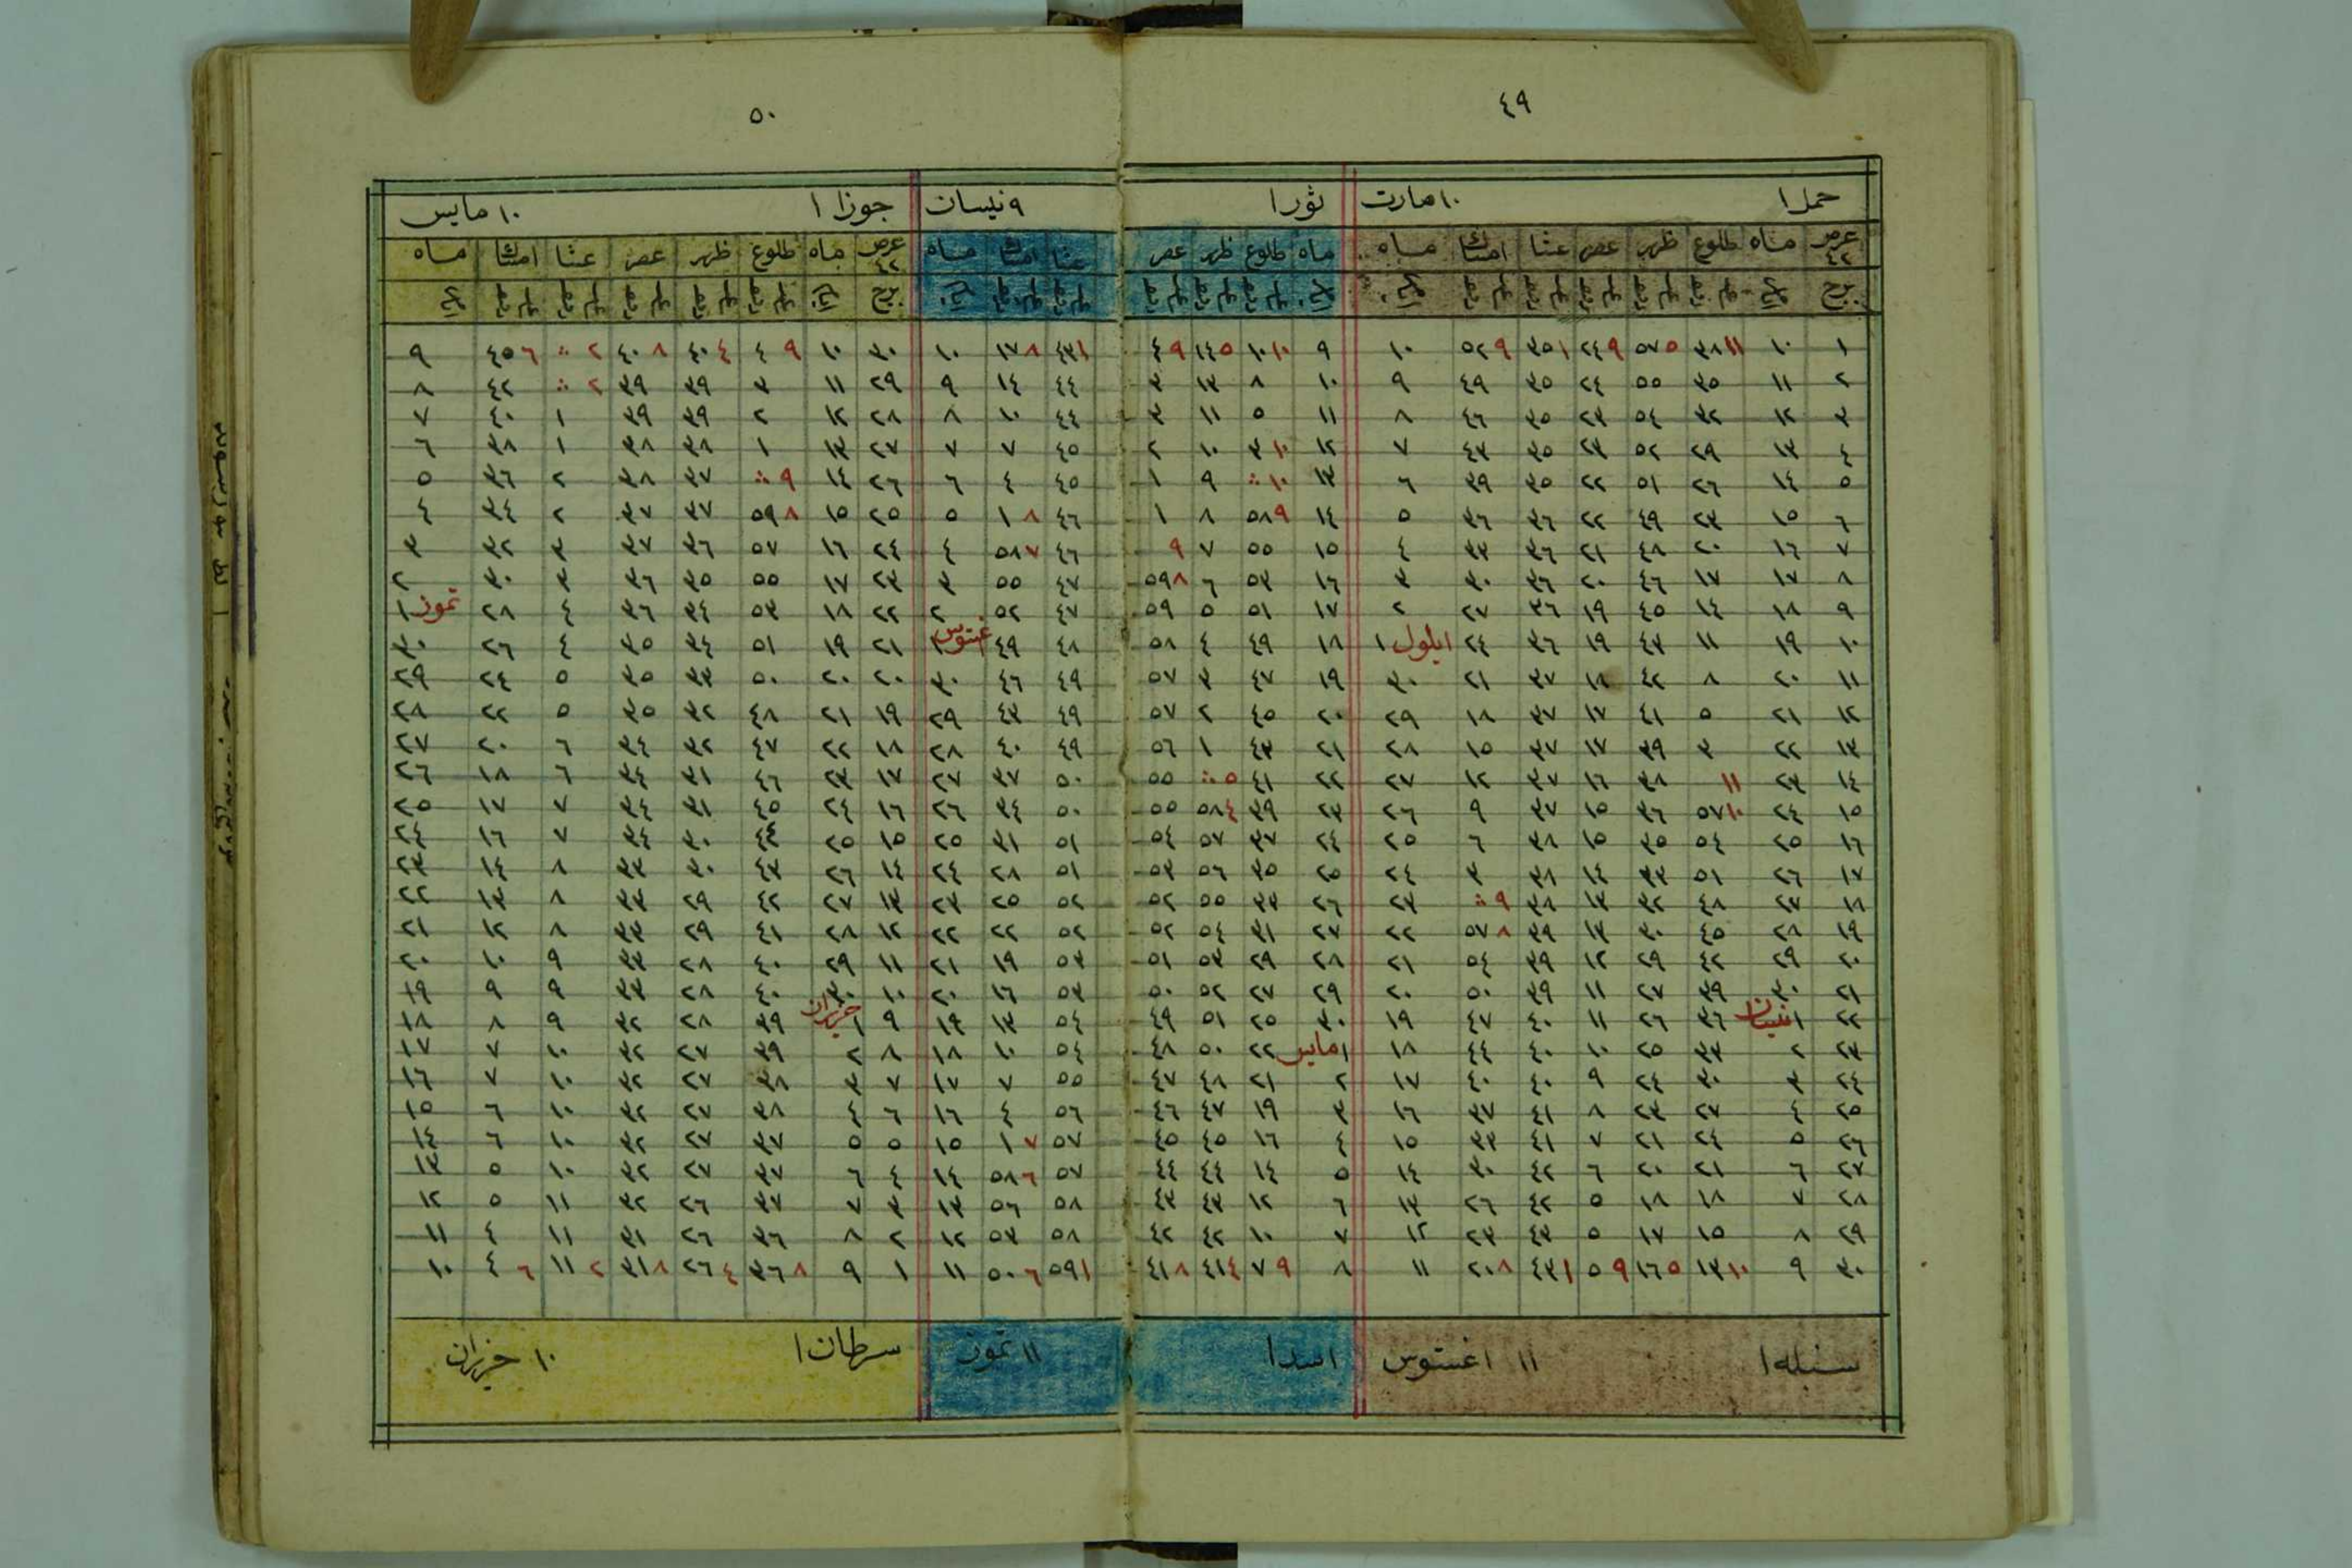 ٤٩
حمل ١ ١٠ مارت ثور ١
عرض ٤٢ ماه طلوع ظهر عصر عشا امساك ماه ماه طلوع ظهر عصر
برج
١ ١٠ ١١ ٣٨ ٥ ٥٧ ٩ ٢٤ ١ ٣٥ ٩ ٥٢ ١٠ ٩ ١٠ ١٠ ٥ ١٤ ٩ ٤
٢ ١١ ٣٥ ٥٥ ٢٤ ٣٥ ٤٩ ٩ ١٠ ٨ ١٣ ٣
٣ ١٢ ٣٢ ٥٤ ٢٣ ٣٥ ٤٦ ٨ ١١ ٥ ١١ ٣
٤ ١٣ ٢٩ ٥٢ ٢٣ ٣٥ ٤٣ ٧ ١٢ ١٠ ٣ ١٠ ٢
٥ ١٤ ٢٦ ٥١ ٢٢ ٣٥ ٣٩ ٦ ١٣ ١٠ ∴ ٩ ١
٦ ١٥ ٢٣ ٤٩ ٢٢ ٣٦ ٣٦ ٥ ١٤ ٩ ٥٨ ٨ ١
٧ ١٦ ٢٠ ٤٨ ٢١ ٣٦ ٣٣ ٤ ١٥ ٥٥ ٧ ٩
٨ ١٧ ١٧ ٤٦ ٢٠ ٣٦ ٣٠ ٣ ١٦ ٥٣ ٦ ٨ ٥٩
٩ ١٨ ١٤ ٤٥ ١٩ ٣٦ ٢٧ ٢ ١٧ ٥١ ٥ ٥٩
١٠ ١٩ ١١ ٤٣ ١٩ ٣٦ ٢٤ ايلول ١ ١٨ ٤٩ ٤ ٥٨
١١ ٢٠ ٨ ٤٢ ١٨ ٣٧ ٢١ ٣٠ ١٩ ٤٧ ٣ ٥٧
١٢ ٢١ ٥ ٤١ ١٧ ٣٧ ١٨ ٢٩ ٢٠ ٤٥ ٢ ٥٧
١٣ ٢٢ ٣ ٣٩ ١٧ ٣٧ ١٥ ٢٨ ٢١ ٤٣ ١ ٥٦
١٤ ٢٣ ١١ ٣٨ ١٦ ٣٧ ١٢ ٢٧ ٢٢ ٤١ ٥ ∴ ٥٥
١٥ ٢٤ ١٠ ٥٧ ٣٦ ١٥ ٣٧ ٩ ٢٦ ٢٣ ٣٩ ٤ ٥٨ ٥٥
١٦ ٢٥ ٥٤ ٣٥ ١٥ ٣٨ ٦ ٢٥ ٢٤ ٣٧ ٥٧ ٥٤
١٧ ٢٦ ٥١ ٣٣ ١٤ ٣٨ ٣ ٢٤ ٢٥ ٣٥ ٥٦ ٥٣
١٨ ٢٧ ٤٨ ٣٢ ١٣ ٣٨ ٩ ∴ ٢٣ ٢٦ ٣٣ ٥٥ ٥٢
١٩ ٢٨ ٤٥ ٣٠ ١٣ ٣٩ ٨ ٥٧ ٢٢ ٢٧ ٣١ ٥٤ ٥٢
٢٠ ٢٩ ٤٢ ٢٩ ١٢ ٣٩ ٥٤ ٢١ ٢٨ ٢٩ ٥٣ ٥١
٢١ ٣٠ ٣٩ ٢٧ ١١ ٣٩ ٥٠ ٢٠ ٢٩ ٢٧ ٥٢ ٥٠
٢٢ ١ نيسان ٣٦ ٢٦ ١١ ٤٠ ٤٧ ١٩ ٣٠ ٢٥ ٥١ ٤٩
٢٣ ٢ ٣٣ ٢٥ ١٠ ٤٠ ٤٤ ١٨ ١ مايس ٢٢ ٥٠ ٤٨
٢٤ ٣ ٣٠ ٢٤ ٩ ٤٠ ٤٠ ١٧ ٢ ٢١ ٤٨ ٤٧
٢٥ ٤ ٢٧ ٢٣ ٨ ٤١ ٣٧ ١٦ ٣ ١٩ ٤٧ ٤٦
٢٦ ٥ ٢٤ ٢١ ٧ ٤١ ٣٣ ١٥ ٤ ١٦ ٤٥ ٤٥
٢٧ ٦ ٢١ ٢٠ ٦ ٤٢ ٣٠ ١٤ ٥ ١٤ ٤٤ ٤٤
٢٨ ٧ ١٨ ١٨ ٥ ٤٢ ٢٦ ١٣ ٦ ١٢ ٤٣ ٤٣
٢٩ ٨ ١٥ ١٧ ٥ ٤٣ ٢٣ ١٢ ٧ ١٠ ٤٢ ٤٢
٣٠ ٩ ١٠ ١٣ ٥ ١٦ ٩ ٥ ١ ٤٣ ٨ ٢٠ ١١ ٨ ٩ ٧ ٤ ٤١ ٨ ٤١
سنبله ١ ١١ اغستوس اسد ١
٥٠
٩ نيسان جوزا ١ ١٠ مايس
عشا امساك ماه عرض ٤٢ ماه طلوع ظهر عصر عشا امساك ماه
برج
١ ٤٣ ٨ ١٧ ١٠ ٣٠ ١٠ ٩ ٤ ٤ ٤٠ ٨ ٤٠ ٢ ∴ ٦ ٤٥ ٩
٤٤ ١٤ ٩ ٢٩ ١١ ٣ ٣٩ ٣٩ ٢ ∴ ٤٢ ٨
٤٤ ١٠ ٨ ٢٨ ١٢ ٢ ٣٩ ٣٩ ١ ٤٠ ٧
٤٥ ٧ ٧ ٢٧ ١٣ ١ ٣٨ ٣٨ ١ ٣٨ ٦
٤٥ ٤ ٦ ٢٦ ١٤ ٩ ∴ ٣٧ ٣٨ ٢ ٣٦ ٥
٤٦ ٨ ١ ٥ ٢٥ ١٥ ٨ ٥٩ ٣٧ ٣٧ ٢ ٣٤ ٤
٤٦ ٧ ٥٨ ٤ ٢٤ ١٦ ٥٧ ٣٦ ٣٧ ٣ ٣٢ ٣
٤٧ ٥٥ ٣ ٢٣ ١٧ ٥٥ ٣٥ ٣٦ ٣ ٣٠ ٢
٤٧ ٥٢ ٢ ٢٢ ١٨ ٥٣ ٣٤ ٣٦ ٤ ٢٨ تموز ١
٤٨ ٤٩ اغستوس ١ ٢١ ١٩ ٥١ ٣٤ ٣٥ ٤ ٢٦ ٣٠
٤٩ ٤٦ ٣٠ ٢٠ ٢٠ ٥٠ ٣٣ ٣٥ ٥ ٢٤ ٢٩
٤٩ ٤٣ ٢٩ ١٩ ٢١ ٤٨ ٣٢ ٣٥ ٥ ٢٢ ٢٨
٤٩ ٤٠ ٢٨ ١٨ ٢٢ ٤٧ ٣٢ ٣٤ ٦ ٢٠ ٢٧
٥٠ ٣٧ ٢٧ ١٧ ٢٣ ٤٦ ٣١ ٣٤ ٦ ١٨ ٢٦
٥٠ ٣٤ ٢٦ ١٦ ٢٤ ٤٥ ٣١ ٣٤ ٧ ١٧ ٢٥
٥١ ٣١ ٢٥ ١٥ ٢٥ ٤٤ ٣٠ ٣٤ ٧ ١٦ ٢٤
٥١ ٢٨ ٢٤ ١٤ ٢٦ ٤٣ ٣٠ ٣٣ ٨ ١٤ ٢٣
٥٢ ٢٥ ٢٣ ١٣ ٢٧ ٤٢ ٢٩ ٣٣ ٨ ١٣ ٢٢
٥٢ ٢٢ ٢٢ ١٢ ٢٨ ٤١ ٢٩ ٣٣ ٨ ١٢ ٢١
٥٣ ١٩ ٢١ ١١ ٢٩ ٤٠ ٢٨ ٣٣ ٩ ١٠ ٢٠
٥٣ ١٦ ٢٠ ١٠ ٣٠ ٤٠ ٢٨ ٣٣ ٩ ٩ ١٩
٥٤ ١٣ ١٩ ٩ ١ حزيران ٣٩ ٢٨ ٣٢ ٩ ٨ ١٨
٥٤ ١٠ ١٨ ٨ ٢ ٣٩ ٢٧ ٣٢ ١٠ ٧ ١٧
٥٥ ٧ ١٧ ٧ ٣ ٣٨ ٢٧ ٣٢ ١٠ ٧ ١٦
٥٦ ٤ ١٦ ٦ ٤ ٣٨ ٢٧ ٣٢ ١٠ ٦ ١٥
٥٧ ٧ ١ ١٥ ٥ ٥ ٣٧ ٢٧ ٣٢ ١٠ ٦ ١٤
٥٧ ٦ ٥٨ ١٤ ٤ ٦ ٣٧ ٢٧ ٣٢ ١٠ ٥ ١٣
٥٨ ٥٦ ١٣ ٣ ٧ ٣٧ ٢٦ ٣٢ ١١ ٥ ١٢
٥٨ ٥٣ ١٢ ٢ ٨ ٣٦ ٢٦ ٣١ ١١ ٤ ١١
١ ٥٩ ٦ ٥٠ ١١ ١ ٩ ٨ ٣٦ ٤ ٢٦ ٨ ٣١ ٢ ١١ ٦ ٤ ١٠
١١ تموز سرطان ١ ١٠ حزيران